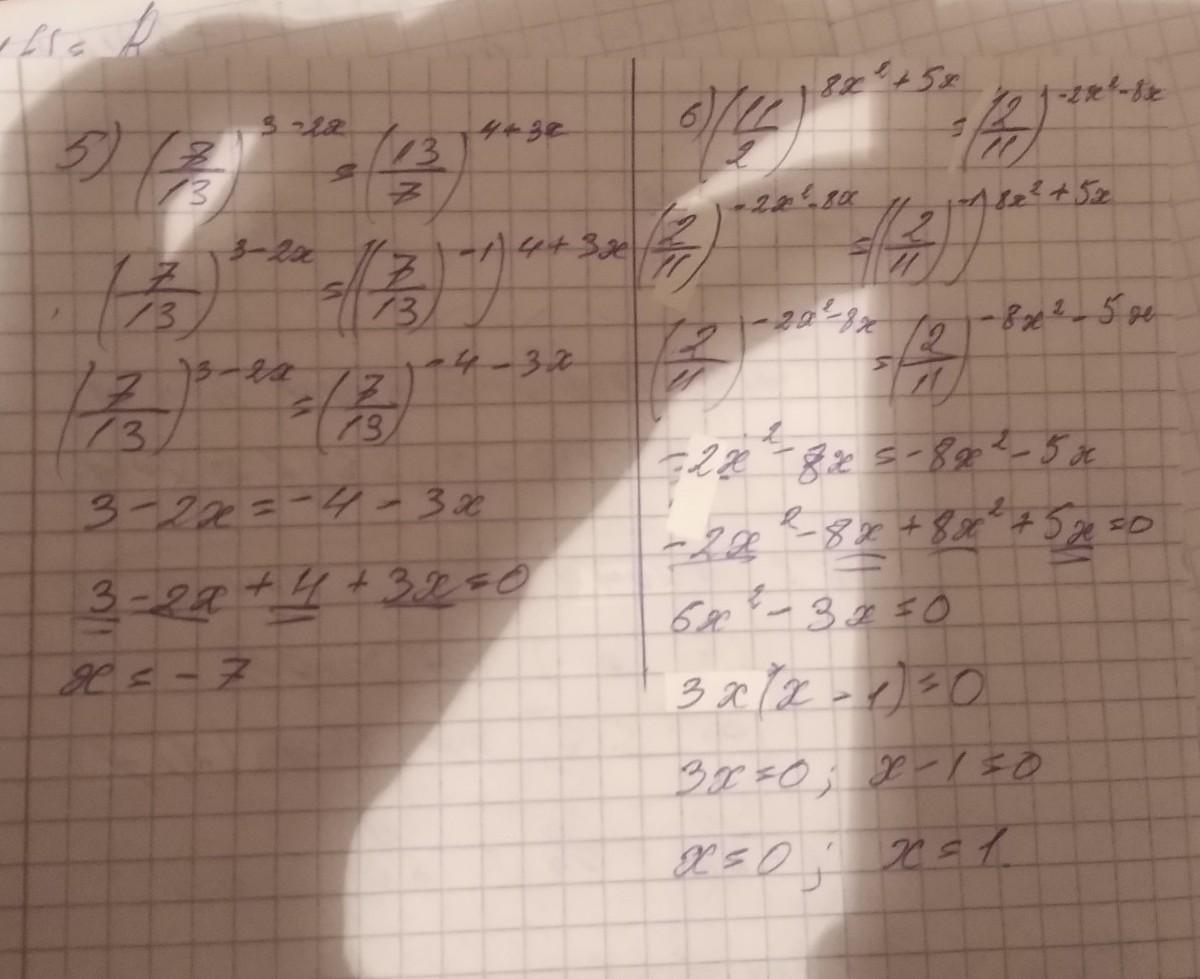 5) (7/13)^(3-2x) = (13/7)^(4+3x)
(7/13)^(3-2x) = ((7/13)^(-1))^(4+3x)
(7/13)^(3-2x) = (7/13)^(-4-3x)
3-2x=-4-3x
3-2x+4+3x=0
x=-7
6) (11/2)^(8x²+5x) = (2/11)^(-2x²-8x)
(2/11)^(-2x²-8x) = ((2/11)^(-1))^(8x²+5x)
(2/11)^(-2x²-8x) = (2/11)^(-8x²-5x)
-2x²-8x=-8x²-5x
-2x²-8x+8x²+5x=0
6x²-3x=0
3x(x-1)=0
3x=0; x-1=0
x=0; x=1.